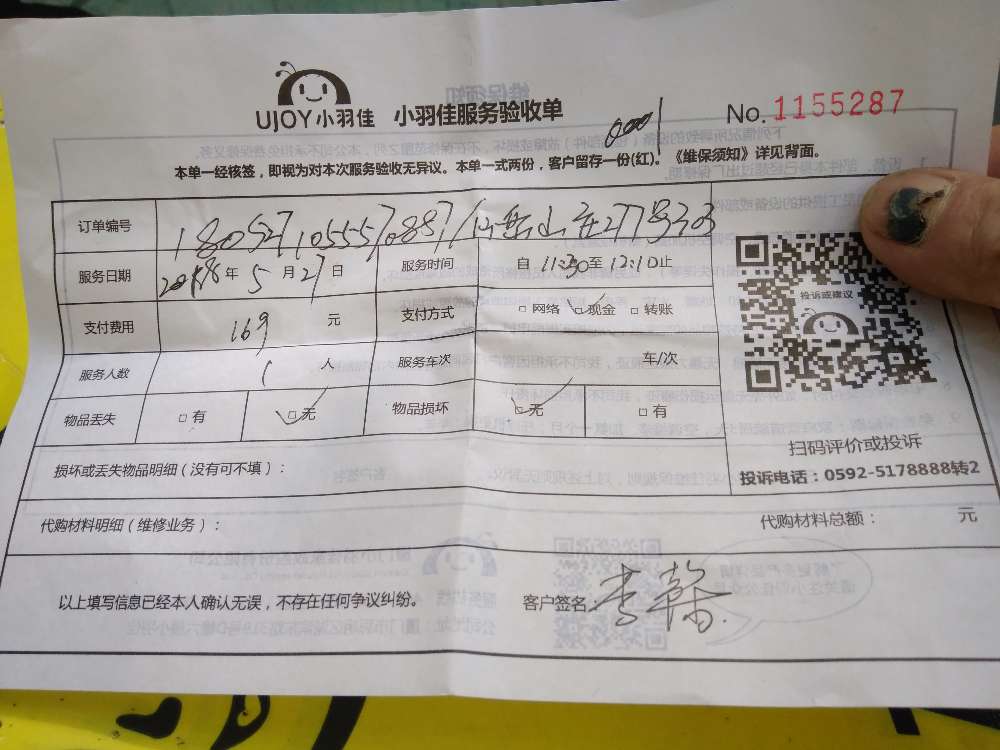 UJOY小羽佳 小羽佳服务验收单
No. 1155287
0001
本单一经核签，即视为对本次服务验收无异议。本单一式两份，客户留存一份(红)。《维保须知》详见背面。
订单编号
服务日期 2018年 5 月 27 日 服务时间 自 11:30至 12:10止
支付费用 169 元 支付方式 □ 网络 ☑现金 □ 转账
服务人数 1 人 服务车次 车/次
物品丢失 □ 有 ☑无 物品损坏 ☑无 □ 有
投诉或建议
扫码评价或投诉
投诉电话：0592-5178888转2
损坏或丢失物品明细（没有可不填）：
代购材料明细（维修业务）： 代购材料总额： 元
以上填写信息已经本人确认无误，不存在任何争议纠纷。 客户签名